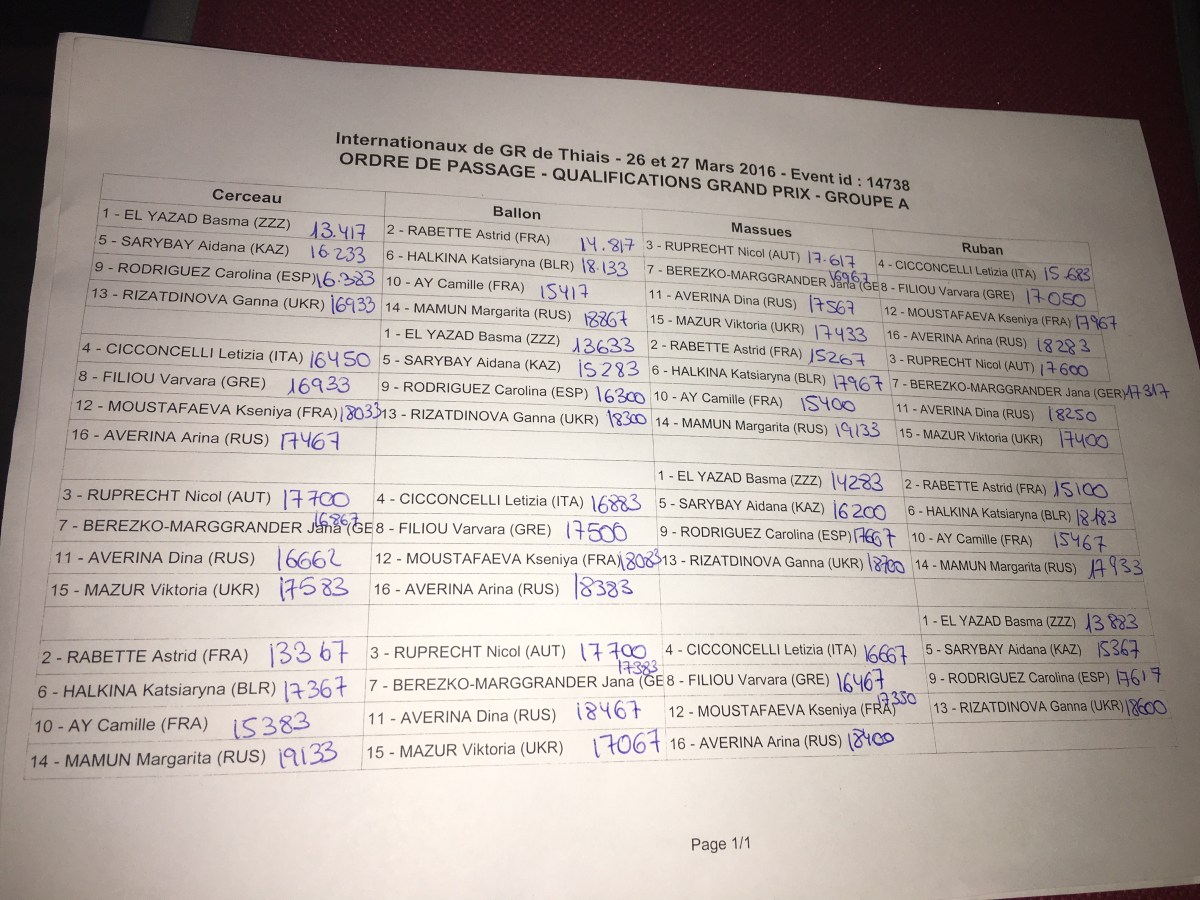 Internationaux de GR de Thiais - 26 et 27 Mars 2016 - Event id : 14738
ORDRE DE PASSAGE - QUALIFICATIONS GRAND PRIX - GROUPE A
Cerceau Ballon Massues Ruban
1 - EL YAZAD Basma (ZZZ) 13.417 2 - RABETTE Astrid (FRA) 14.817 3 - RUPRECHT Nicol (AUT) 17.617 4 - CICCONCELLI Letizia (ITA) 15.683
5 - SARYBAY Aidana (KAZ) 16.233 6 - HALKINA Katsiaryna (BLR) 18.133 7 - BEREZKO-MARGGRANDER Jana (GE 16967 8 - FILIOU Varvara (GRE) 17050
9 - RODRIGUEZ Carolina (ESP) 16.383 10 - AY Camille (FRA) 15417 11 - AVERINA Dina (RUS) 17567 12 - MOUSTAFAEVA Kseniya (FRA) 17967
13 - RIZATDINOVA Ganna (UKR) 16933 14 - MAMUN Margarita (RUS) 18867 15 - MAZUR Viktoria (UKR) 17433 16 - AVERINA Arina (RUS) 18283
1 - EL YAZAD Basma (ZZZ) 13633 2 - RABETTE Astrid (FRA) 15267 3 - RUPRECHT Nicol (AUT) 17600
4 - CICCONCELLI Letizia (ITA) 16450 5 - SARYBAY Aidana (KAZ) 15283 6 - HALKINA Katsiaryna (BLR) 17967 7 - BEREZKO-MARGGRANDER Jana (GER) 17317
8 - FILIOU Varvara (GRE) 16933 9 - RODRIGUEZ Carolina (ESP) 16300 10 - AY Camille (FRA) 15400 11 - AVERINA Dina (RUS) 18250
12 - MOUSTAFAEVA Kseniya (FRA) 18033 13 - RIZATDINOVA Ganna (UKR) 18300 14 - MAMUN Margarita (RUS) 19133 15 - MAZUR Viktoria (UKR) 17400
16 - AVERINA Arina (RUS) 17467
1 - EL YAZAD Basma (ZZZ) 14283 2 - RABETTE Astrid (FRA) 15100
3 - RUPRECHT Nicol (AUT) 17700 4 - CICCONCELLI Letizia (ITA) 16883 5 - SARYBAY Aidana (KAZ) 16200 6 - HALKINA Katsiaryna (BLR) 18183
7 - BEREZKO-MARGGRANDER Jana (GE 16867 8 - FILIOU Varvara (GRE) 17500 9 - RODRIGUEZ Carolina (ESP) 17667 10 - AY Camille (FRA) 15467
11 - AVERINA Dina (RUS) 16662 12 - MOUSTAFAEVA Kseniya (FRA) 18083 13 - RIZATDINOVA Ganna (UKR) 18700 14 - MAMUN Margarita (RUS) 17933
15 - MAZUR Viktoria (UKR) 17583 16 - AVERINA Arina (RUS) 18383
1 - EL YAZAD Basma (ZZZ) 13883
2 - RABETTE Astrid (FRA) 13367 3 - RUPRECHT Nicol (AUT) 17700 4 - CICCONCELLI Letizia (ITA) 16667 5 - SARYBAY Aidana (KAZ) 15367
6 - HALKINA Katsiaryna (BLR) 17367 7 - BEREZKO-MARGGRANDER Jana (GE 17383 8 - FILIOU Varvara (GRE) 16467 9 - RODRIGUEZ Carolina (ESP) 17617
10 - AY Camille (FRA) 15383 11 - AVERINA Dina (RUS) 18467 12 - MOUSTAFAEVA Kseniya (FRA) 17350 13 - RIZATDINOVA Ganna (UKR) 18600
14 - MAMUN Margarita (RUS) 19133 15 - MAZUR Viktoria (UKR) 17067 16 - AVERINA Arina (RUS) 18400
Page 1/1